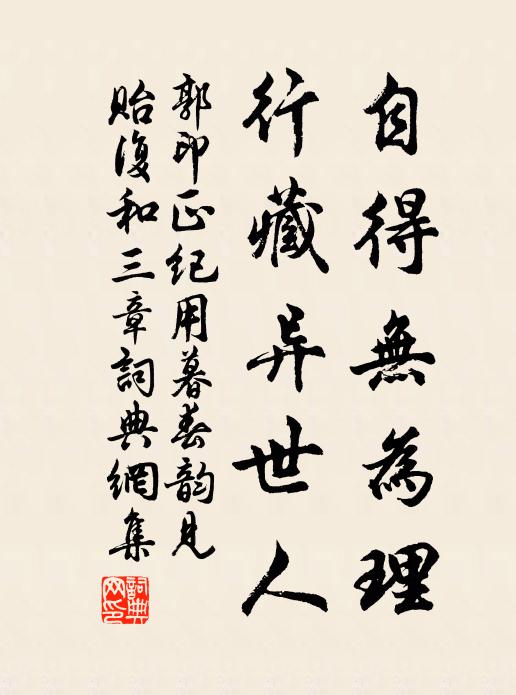 自得無為理
行藏异世人
郭印正紀用暮春韵見
貽復和三章詞典網集
詞典網印